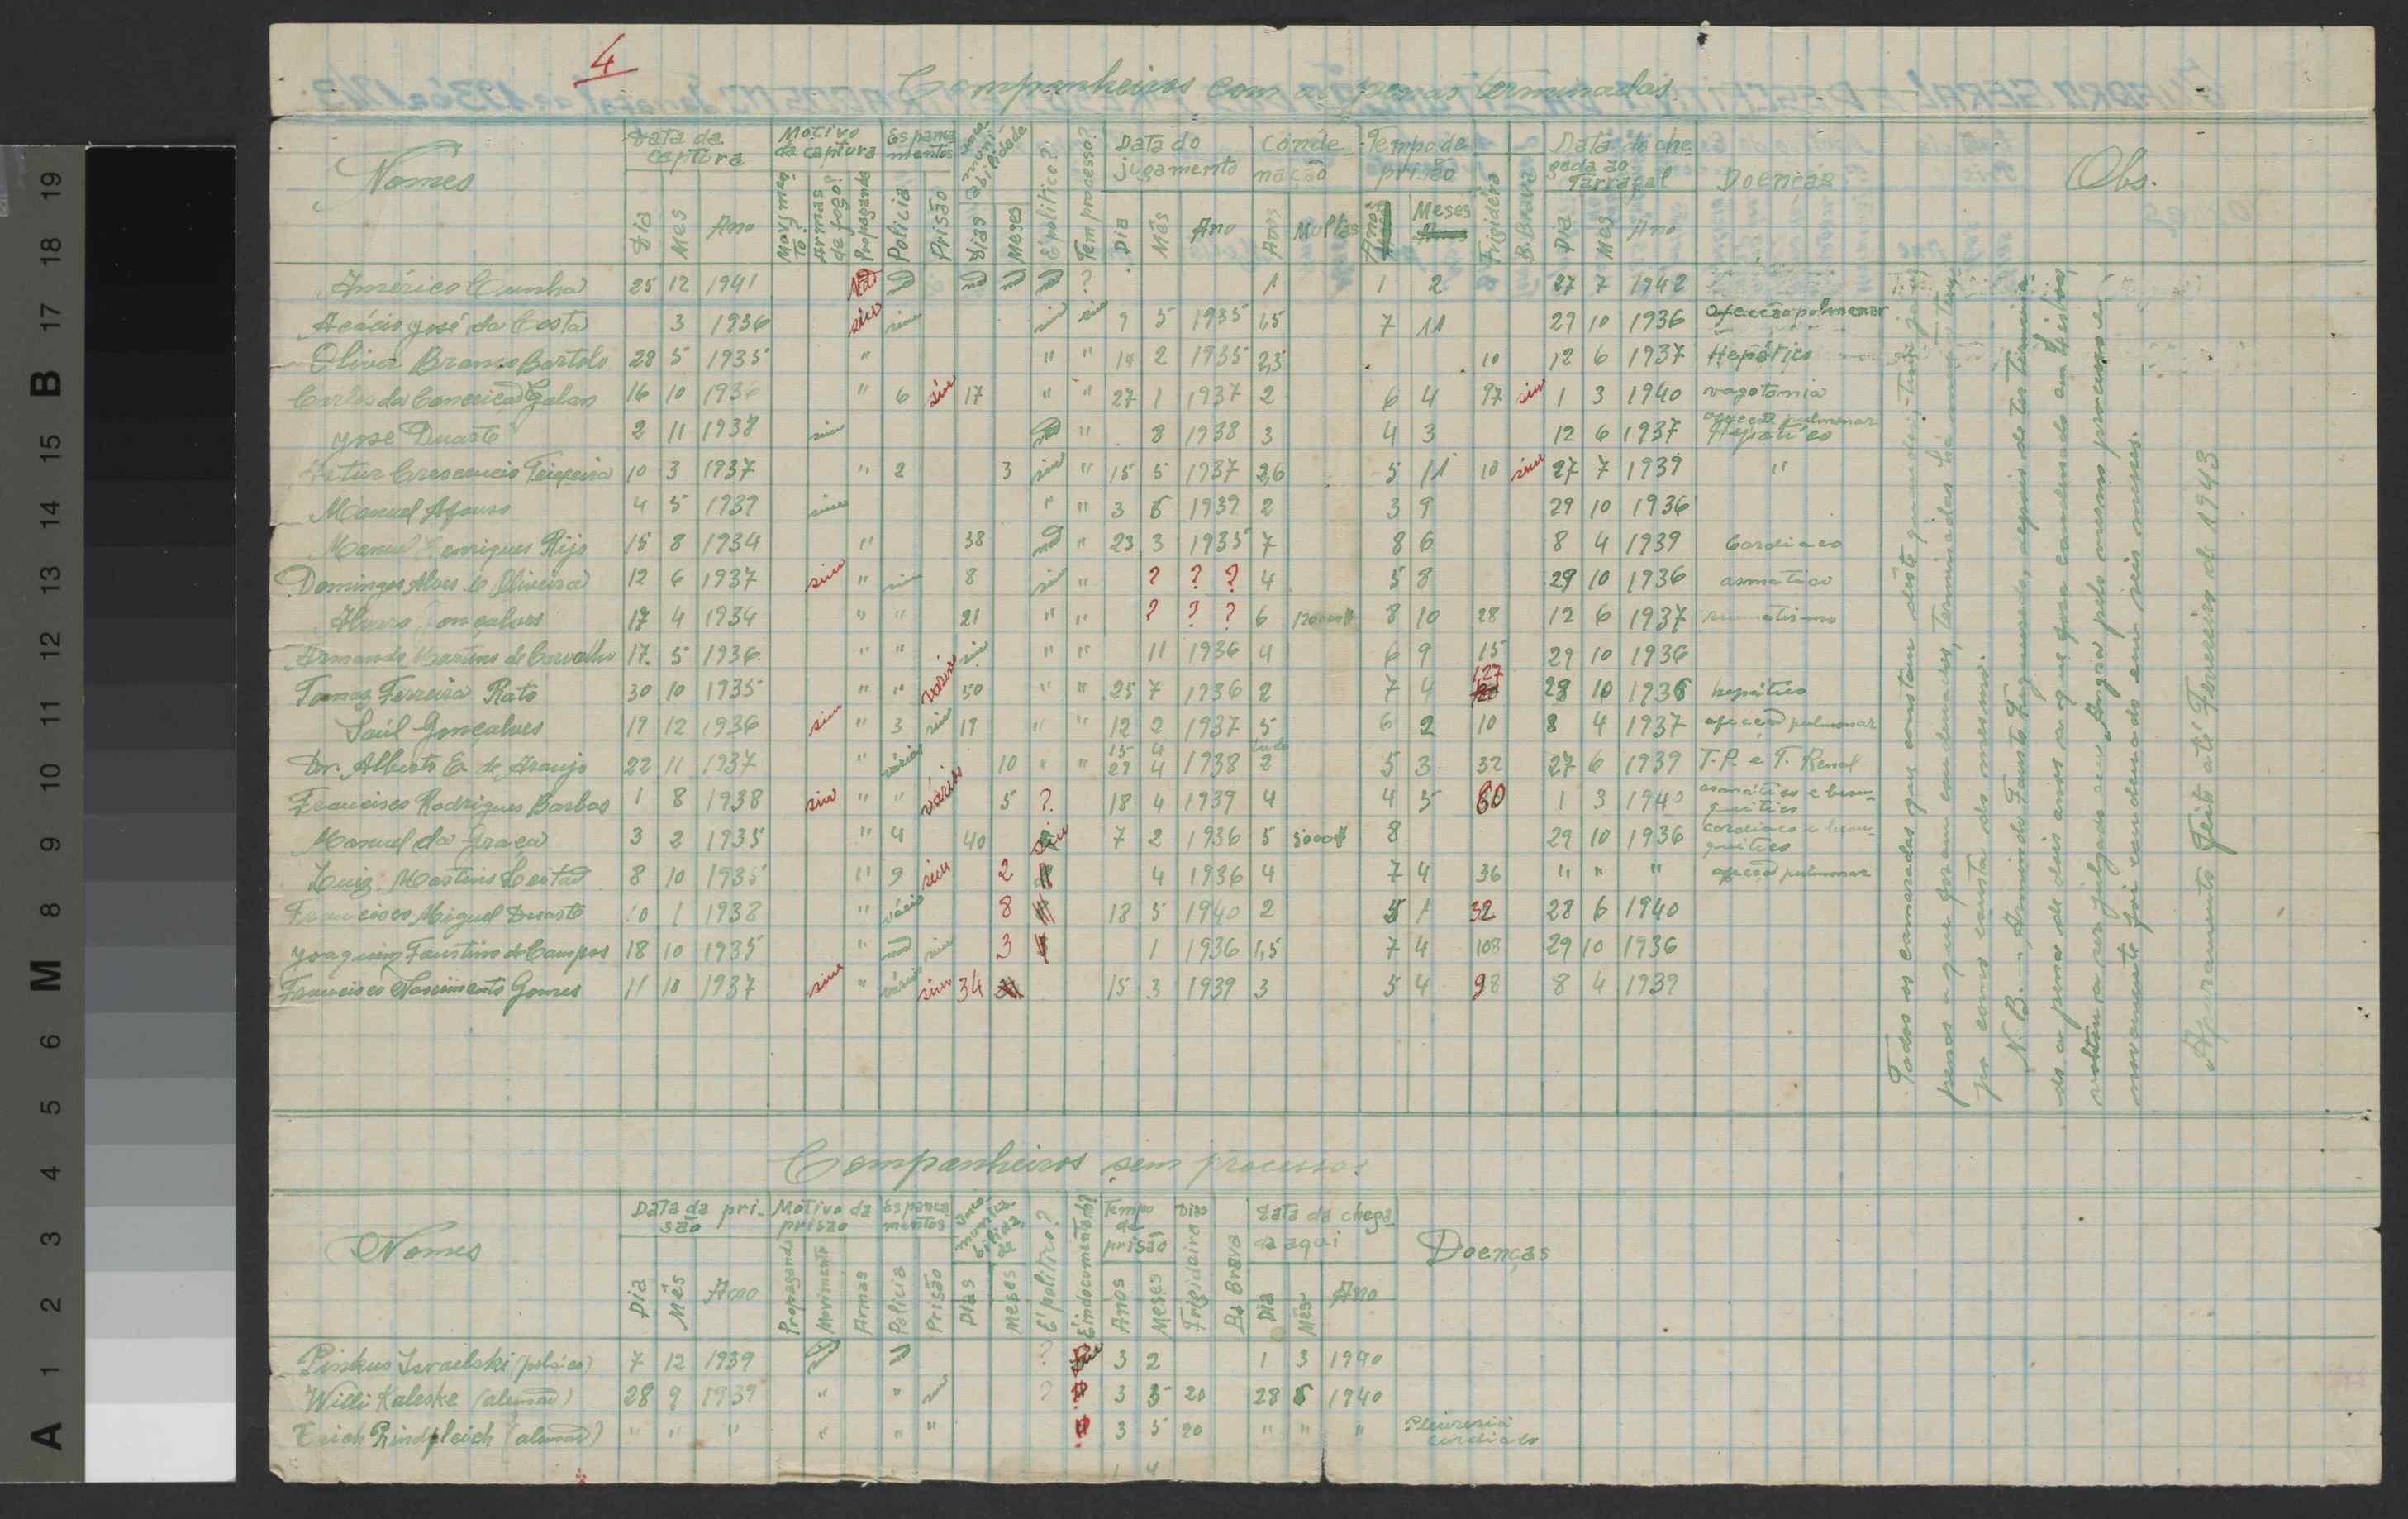 4
Companheiros com as penas terminadas.
Nomes
Data da captura
Motivo da captura
Espancamentos
É político?
Tem processo?
Data do jugamento
Condenação
Tempo de prisão
Frigideira
B. Brava
Data de chegada ao Tarrafal
Doenças
Obs.
Dia Mes Ano Movimento? Armas de fogo? Propaganda Policia Prisão Dias Meses Dia Mês Ano Anos Multas Anos Meses Dia Mes Ano
Américo Cunha 25 12 1941 não não não não não ? 1 1 2 27 7 1942
Acácio José da Costa 3 1936 sim sim sim sim 9 5 1935 1,5 7 11 29 10 1936 afecção polmonar
Oliver Branco Bartolo 28 5 1935 " " " 14 2 1935 2,5 10 12 6 1937 Hepático
Carlos da Conceição Galan 16 10 1936 " 6 sim 17 " " 27 1 1937 2 6 4 97 sim 1 3 1940 vagotomia
José Duarte 2 11 1938 sim " 8 1938 3 4 3 12 6 1937 afecção pulmonar Hepático
Artur Crescencio Teixeira 10 3 1937 " 2 3 sim " 15 5 1937 2,6 5 11 10 sim 27 7 1939 "
Manuel Afonso 4 5 1939 sim " " 3 6 1939 2 3 9 29 10 1936
Manuel Henriques Rijo 15 8 1934 " 38 não " 23 3 1935 7 8 6 8 4 1939 Cardiaco
Domingos Alves de Oliveira 12 6 1937 sim " sim 8 sim " ? ? ? 4 5 8 29 10 1936 asmatico
Alvaro Gonçalves 17 4 1934 " " 21 " " ? ? ? 6 8 10 28 12 6 1937 reumatismo
Armando Martins de Carvalho 17 5 1936 " " sim " " 11 1936 4 6 9 15 29 10 1936
Tomaz Ferreira Rato 30 10 1935 " " varias 50 " " 25 7 1936 2 7 4 127 28 10 1936 hepático
Saúl Gonçalves 19 12 1936 sim " 3 sim 19 " " 12 2 1937 5 6 2 10 8 4 1937 afecção pulmonar
Dr. Alberto E. de Araujo 22 11 1937 " várias 10 " " 15 4 29 4 1938 2 5 3 32 27 6 1939 T.P. e T. Renal
Francisco Rodrigues Barbas 1 8 1938 sim " " várias 5 ? 18 4 1939 4 4 5 60 1 3 1940 asmático e bronquitico
Manuel da Graça 3 2 1935 " 4 40 sim 7 2 1936 5 5000$ 8 29 10 1936 cardiaco e bronquitico
Luiz Martins Leitão 8 10 1935 " 9 sim 2 4 1936 4 7 4 36 " " " afecção pulmonar
Francisco Miguel Duarte 10 1 1938 " vários 8 18 5 1940 2 5 1 32 28 6 1940
Joaquim Faustino de Campos 18 10 1935 " não sim 3 1 1936 1,5 7 4 108 29 10 1936
Francisco Nascimento Gomes 11 10 1937 sim " várias sim 34 15 3 1939 3 5 4 98 8 4 1939
Todos os camaradas que constam dêste
penas a que foram condenados, terminadas há
por como consta do mesmo.
N.B. — Armindo Fausto Figueiredo, depois de ter termina-
do a pena de dois anos a que fora condenado em Lisboa,
voltou a ser julgado em Angra pelo mesmo processo e
novamente foi condenado em seis meses.
Apuramento feito até Fevereiro de 1943
Companheiros sem processos
Nomes
Data da prisão
Motivo da prisão
Espancamentos
Incomunicabilidade
É político?
É indocumentado?
Tempo de prisão
Dias Frigideira
B. Brava
Data da chegada aqui
Doenças
Dia Mês Ano Propaganda Movimento Armas Policia Prisão Dias Meses Anos Meses Dia Mês Ano
Pinkus Israelski (polaco) 7 12 1939 não não ? 3 2 1 3 1940
Willi Kaleske (alemão) 28 9 1939 " " sim ? 3 5 20 28 6 1940
Erich Rindfleich (alemão) " " " " " " 3 5 20 " " " Pleuresia cardiaco